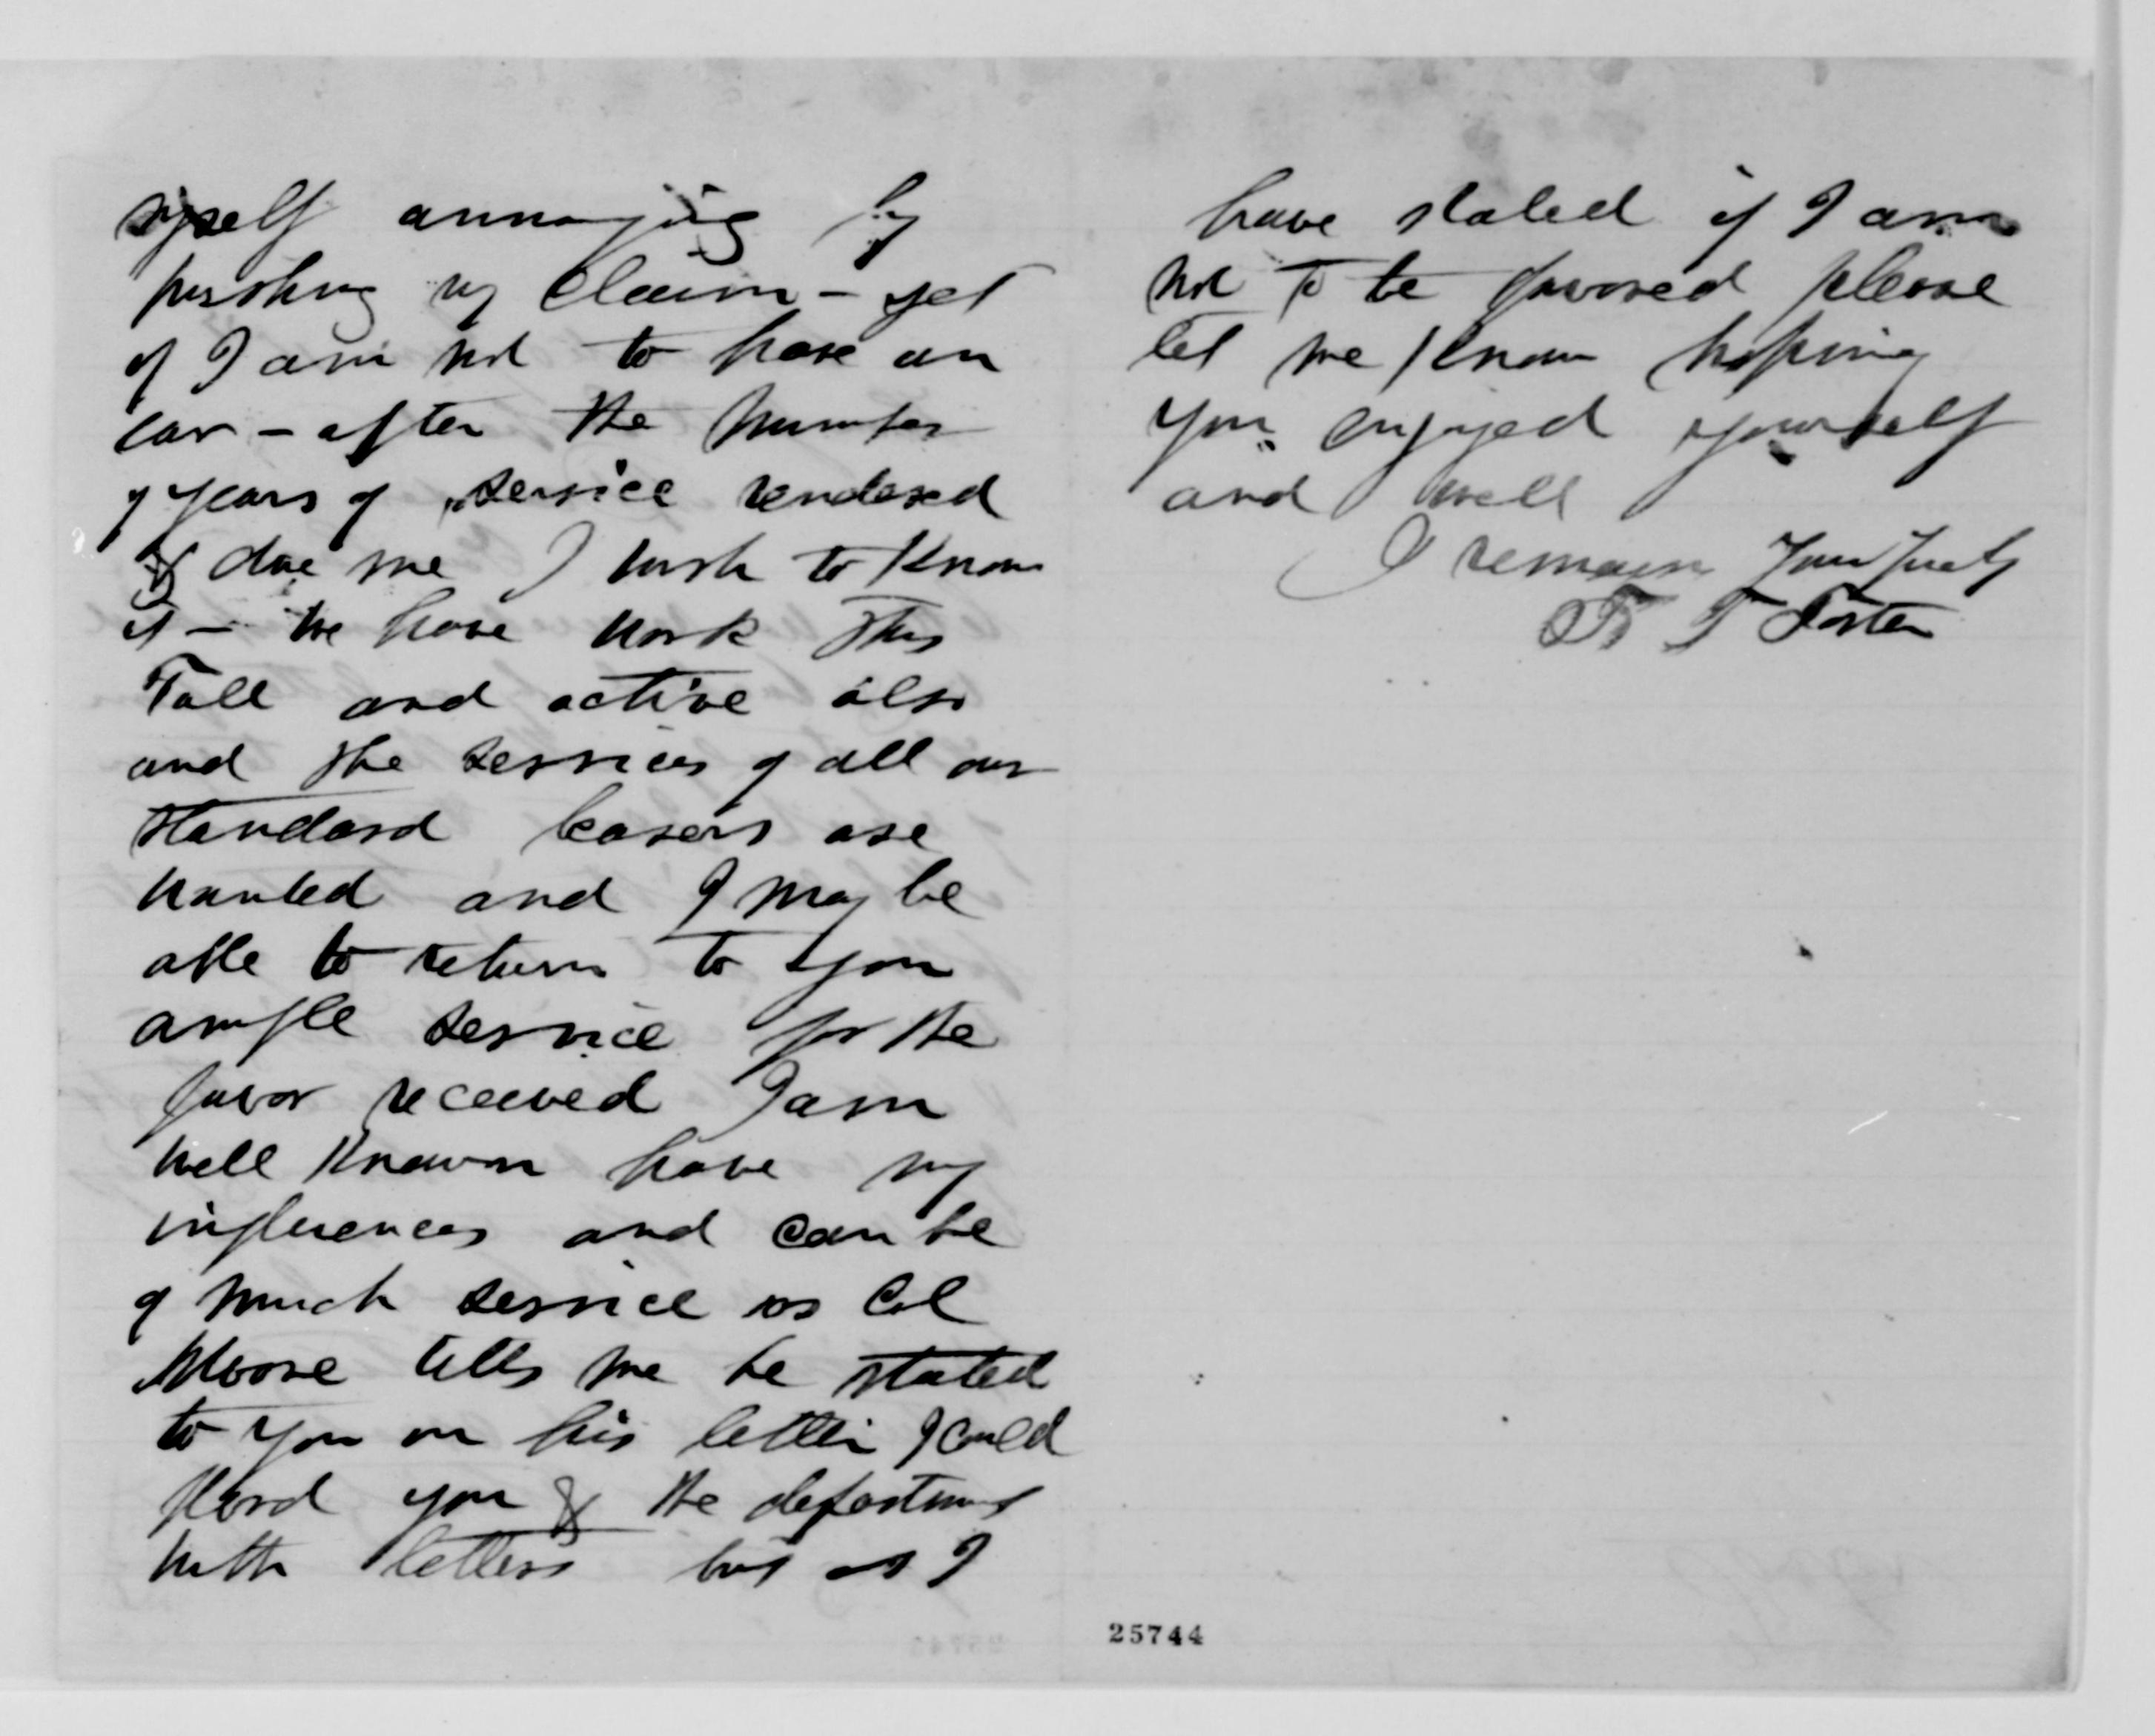 myself annoying by
pushing my claim - yet
if I am not to have an
ear - after the number
of years of service rendered
& due me I wish to know
it - We have work this
Fall and active also
and the services of all our
standard bearers are
wanted and I may be
able to return to you
ample service for the
favor received I am
well known have my
influences and can be
of much service as Col
Moore tells me he stated
to you in his letter I could
flood you & the department
with letters but as I
have stated if I am
not to be favored please
let me know hoping
you enjoyed yourself
and well
I remain Yours truly
T Foster
25744